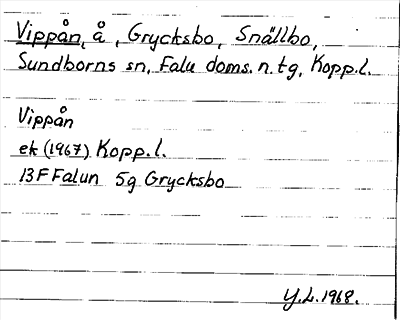 Vippån, å, Grycksbo, Snällbo,
Sundborns sn, Falu doms. n. tg, Kopp.l.
Vippån
ek (1967) Kopp.l.
13F Falun 5g Grycksbo
Y.L. 1968.